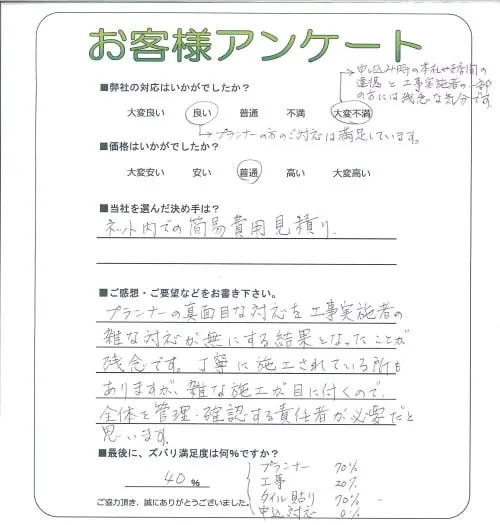 お客様アンケート
■弊社の対応はいかがでしたか?
申し込み時の本社や店間の
連携と工事実施者の一部
の方には残念な気分です。
大変良い 良い 普通 不満 大変不満
プランナーの方のご対応は満足しています。
■価格はいかがでしたか?
大変安い 安い 普通 高い 大変高い
■当社を選んだ決め手は?
ネット内での簡易費用見積り.
■ご感想・ご要望などをお書き下さい。
プランナーの真面目な対応を工事実施者の
雑な対応が無にする結果となったことが
残念です。丁寧に施工されている所も
ありますが、雑な施工が目に付くので、
全体を管理・確認する責任者が必要だと
思います。
■最後に、ズバリ満足度は何%ですか?
40 %
プランナー 70%
工事 20%
タイル貼り 70%
申込対応 0%
ご協力頂き、誠にありがとうございました。